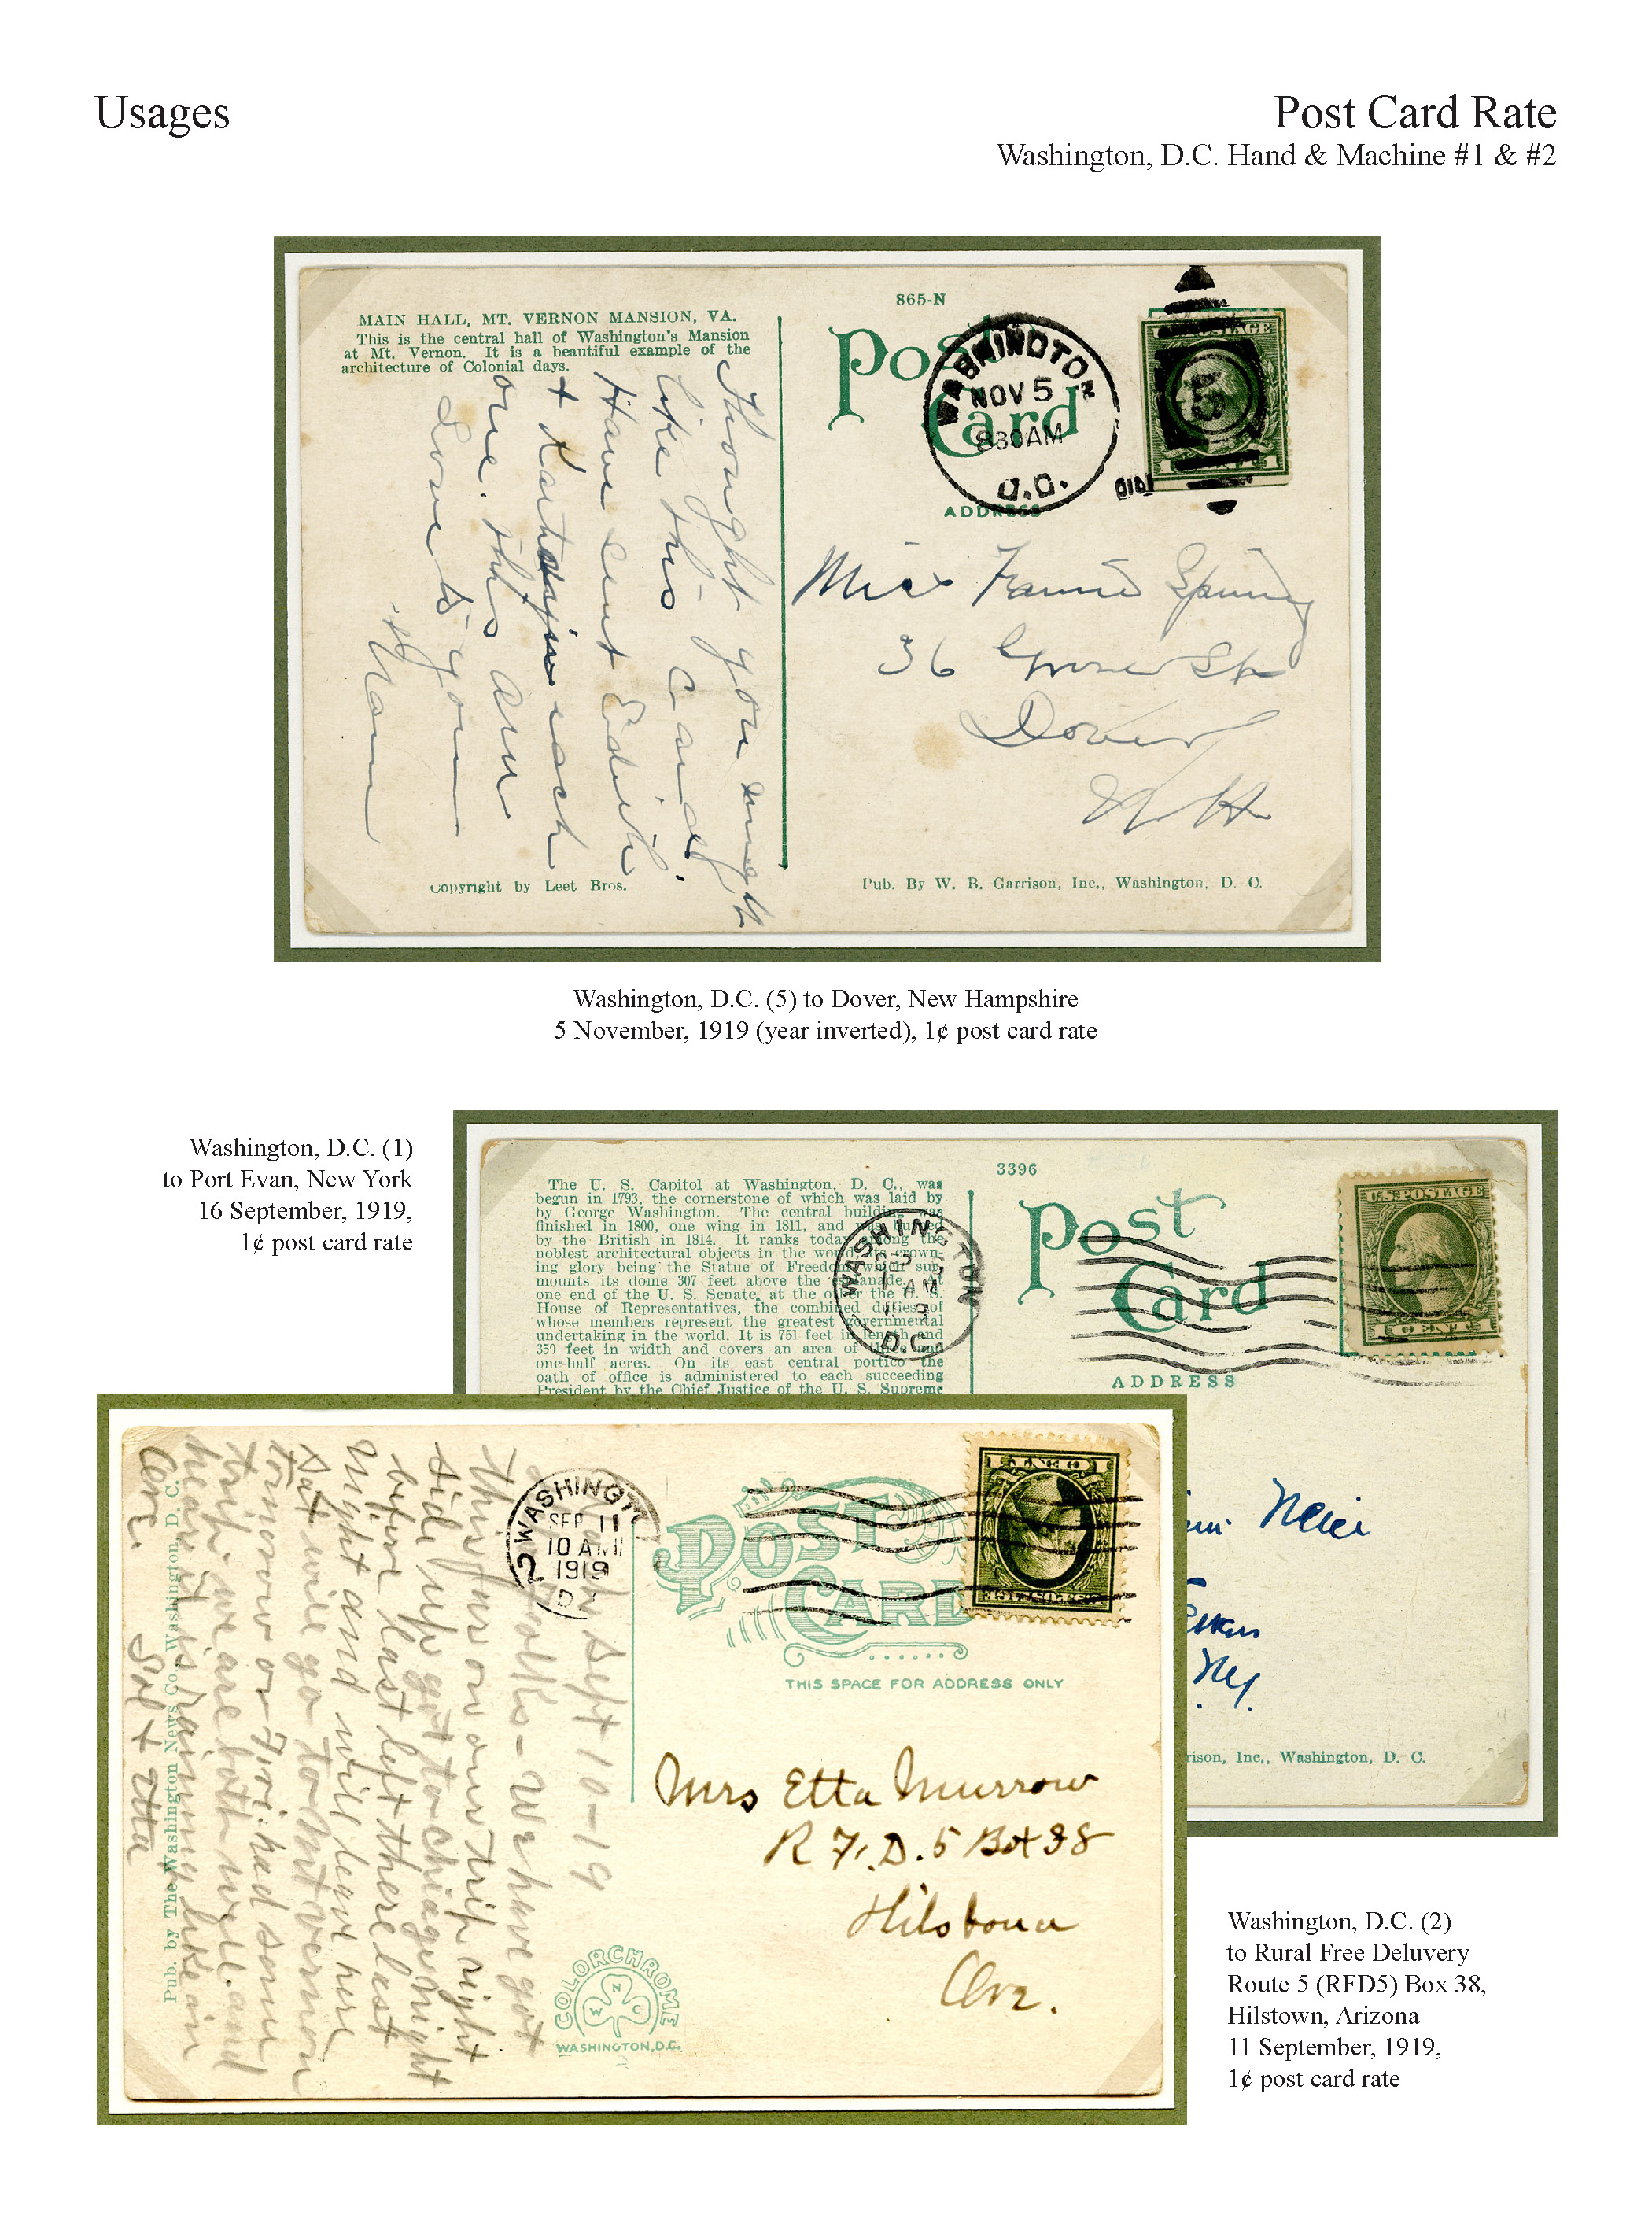 Usages
Post Card Rate
Washington, D.C. Hand & Machine #1 & #2
865-N
MAIN HALL, MT. VERNON MANSION, VA.
This is the central hall of Washington's Mansion
at Mt. Vernon. It is a beautiful example of the
architecture of Colonial days.
Post
Card
WASHINGTON
NOV 5
830AM
D.C.
ADDRESS
Thought you might
like this card.
Have sent Edith
+ each
one. this
Love to you
Miss Fannie
36 St
Dover
N H
Copyright by Leet Bros.
Pub. By W. B. Garrison, Inc., Washington, D. C.
Washington, D.C. (5) to Dover, New Hampshire
5 November, 1919 (year inverted), 1¢ post card rate
Washington, D.C. (1)
to Port Evan, New York
16 September, 1919,
1¢ post card rate
3396
The U. S. Capitol at Washington, D. C., was
begun in 1793, the cornerstone of which was laid by
by George Washington. The central building was
finished in 1800, one wing in 1811, and was burned
by the British in 1814. It ranks today among the
noblest architectural objects in the world, its crown-
ing glory being the Statue of Freedom which sur-
mounts its dome 307 feet above the esplanade. At
one end of the U. S. Senate, at the other the U. S.
House of Representatives, the combined duties of
whose members represent the greatest governmental
undertaking in the world. It is 751 feet in length and
350 feet in width and covers an area of three and
one-half acres. On its east central portico the
oath of office is administered to each succeeding
President by the Chief Justice of the U. S. Supreme
WASHINGTON
AM
D.C.
Post
Card
U.S. POSTAGE
1 CENT 1
ADDRESS
N.Y.
rison, Inc., Washington, D. C.
Sept 10-19
folks - We have got
thus far on our trip right
side up got to Chicago night
before last left there last
night and will leave here
Sat will go to Mt vernon
tomorrow or Fri. had some
trip we are both well. and
here it is raining like an
Sol + Etta
Pub. by The Washington News Co., Washington, D. C.
WASHINGTON
2
SEP 11
10 AM
1919
D.
POST
CARD
THIS SPACE FOR ADDRESS ONLY
Mrs Etta Murrow
R.F.D. 5 Box 38
Ariz.
COLORCHROME
W N C
WASHINGTON, D.C.
Washington, D.C. (2)
to Rural Free Deluvery
Route 5 (RFD5) Box 38,
Hilstown, Arizona
11 September, 1919,
1¢ post card rate